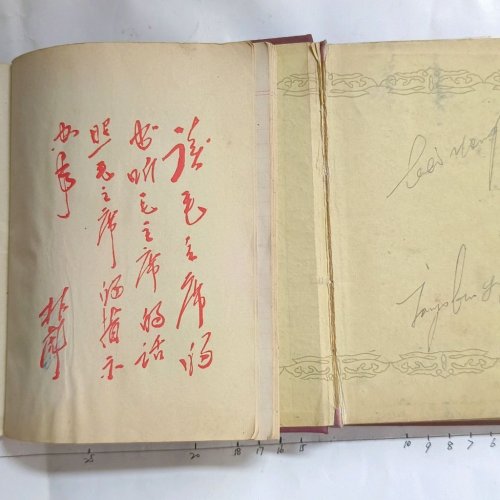 读毛主席的
书听毛主席的话
照毛主席的指示
办事
林彪
25 20 18 17 16 15 10 9 8 7 6